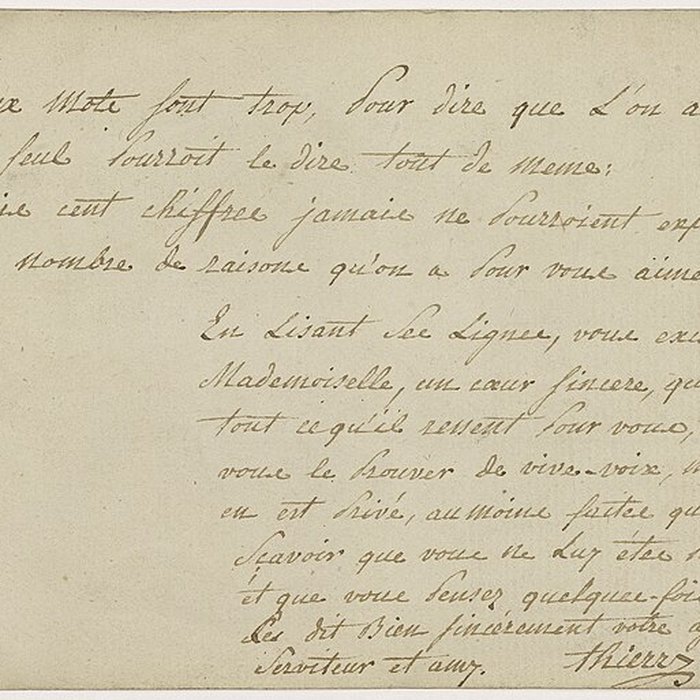 mots sont trop, Pour dire que L'on a
seul Pourroit le dire tout de meme:
cent chiffres jamais ne Pourroient
nombre de raisons qu'on a Pour vous
En Lisant Ses Lignes, vous
Mademoiselle, un cœur sincere,
tout ce qu'il ressent Pour vous,
vous le Prouver de vive-voix,
en est Privé, au moins faites
Scavoir que vous ne Luy étes
ét que vous Pensez quelques-foi
Les dit Bien sincérement votre
Serviteur et amy. thierry